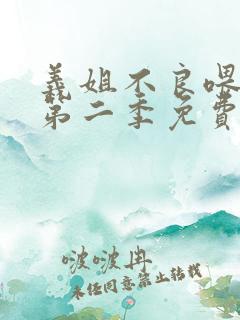 義姐不良喂
第二季免費
啵啵冉
未经同意禁止转载